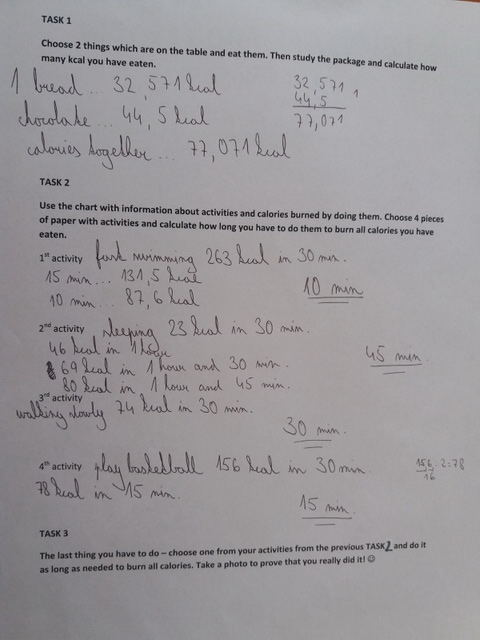 TASK 1
Choose 2 things which are on the table and eat them. Then study the package and calculate how
many kcal you have eaten.
1 bread ... 32,571 kcal
32,571
chocolate ... 44,5 kcal
44,5
77,071
calories together ... 77,071 kcal
TASK 2
Use the chart with information about activities and calories burned by doing them. Choose 4 pieces
of paper with activities and calculate how long you have to do them to burn all calories you have
eaten.
1st activity fast swimming 263 kcal in 30 min.
15 min... 131,5 kcal
10 min
10 min... 87,6 kcal
2nd activity sleeping 23 kcal in 30 min.
46 kcal in 1 hour
45 min.
69 kcal in 1 hour and 30 min.
80 kcal in 1 hour and 45 min.
3rd activity
walking slowly 74 kcal in 30 min.
30 min.
4th activity play basketball 156 kcal in 30 min
156:2=78
16
78 kcal in 15 min.
15 min.
TASK 3
The last thing you have to do – choose one from your activities from the previous TASK 2 and do it
as long as needed to burn all calories. Take a photo to prove that you really did it! ☺